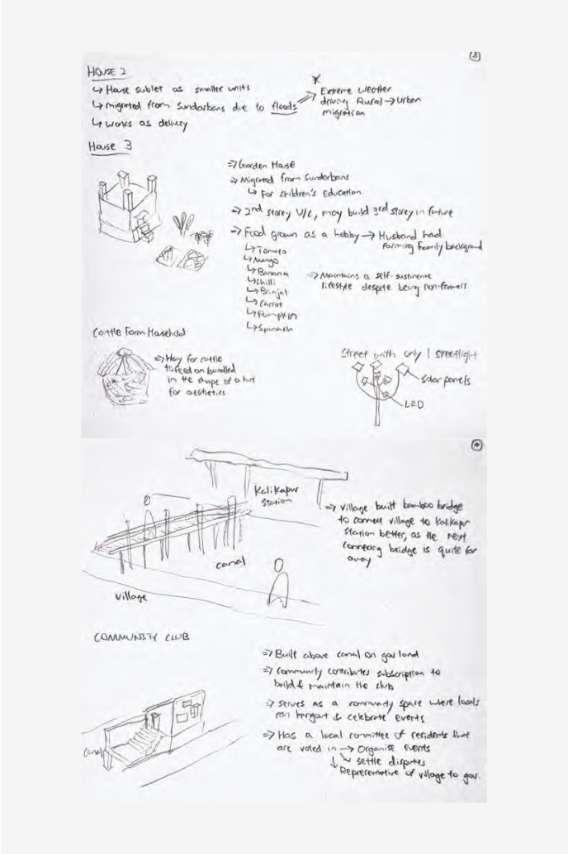 ③
HOUSE 2
↳ House sublet as smaller units
↳ migrated from Sundarbans due to floods
↳ works as delivery
*
Extreme weather
driving Rural → Urban
migration
House 3
⇒ Garden House
⇒ Migrated from Sundarbans
↳ For children's Education
⇒ 2nd storey U/C, may build 3rd storey in future
⇒ Food grown as a hobby → Husband had
farming family background
↳ Tomato
↳ Mango
↳ Banana
↳ chilli
↳ Brinjal
↳ Carrot
↳ Pumpkin
↳ Spinach
⇒ Maintains a self-sustinence
lifestyle despite being non-farmers
Cattle Farm Household
⇒ Hay for cattle
to feed on bundled
in the shape of a hut
for aesthetics
Street with only 1 streetlight
solar panels
LED
Kalikapur
Station
canal
village
⇒ village built bamboo bridge
to connect village to Kalikapur
station better, as the next
connecting bridge is quite far
away
COMMUNITY CLUB
canal
⇒ Built above canal on gov land
⇒ Community contributes subscription to
build & maintain the club
⇒ serves as a community space where locals
can hangout & celebrate events
⇒ Has a local committee of residents that
are voted in → Organise events
↘ settle disputes
↓ Representative of village to gov.